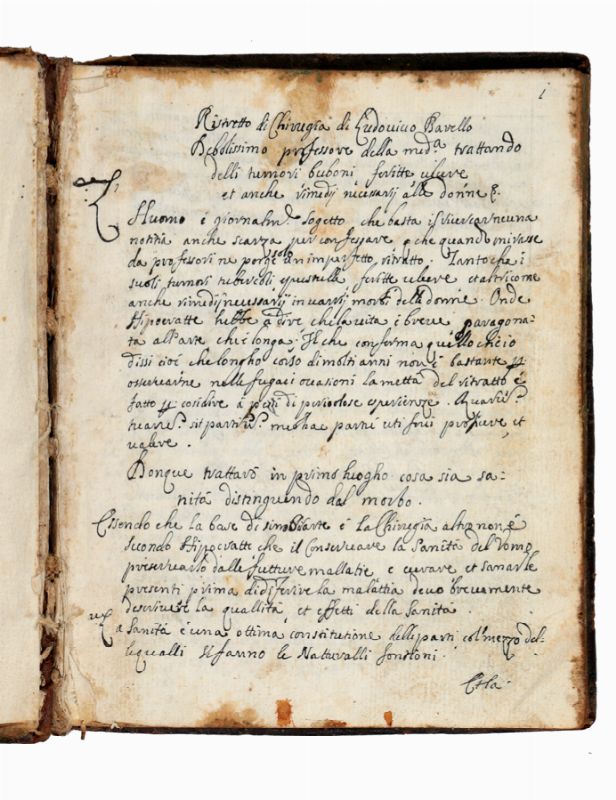 1
Ristretto di Chirugia di Ludovico Bavello
Debolissimo professore della med.a trattando
delli tumori buboni feritte ulcere
et anche rimedij necessarij alle donne
L'huomo è giornalm. sogetto che basta
notitia anche scarza per confessare, che quando mirasse
da professori ne porge solo un imperfetto ritratto. Tanto che i
suoli tumori tubercoli e pustelle feritte ulcere et altri come
anche rimedij necessarij in varij morbi delle donne. Onde
Hipocratte hebbe a dire che la vita è breve paragona-
ta all'arte ch'è longa. Il che conferma quello ch'io
dissi cioè che longho corso di molti anni non è bastante p
osservarne nelle fugaci ocasioni la mettà del ritratto è
fatto p cosi dire à di pericolose esperienze.
sit parti parue uti frui et
valere.
Donque trattarò in primo luogho cosa sia sa=
nità distinguendo dal morbo.
Essendo che la base di simil arte è la Chirugia altro non è
secondo Hipocratte che il Conservare la Sanità del Uomo
preservarlo dalle futture mallatie e curare et sanar le
presenti prima di diferire la malattia devo brevamente
descrivere la quallità et effetti della Sanità.
La Sanità è una ottima constitutione delle parti col mezzo del-
le qualli si fanno le Natturalli fontioni.
Et la